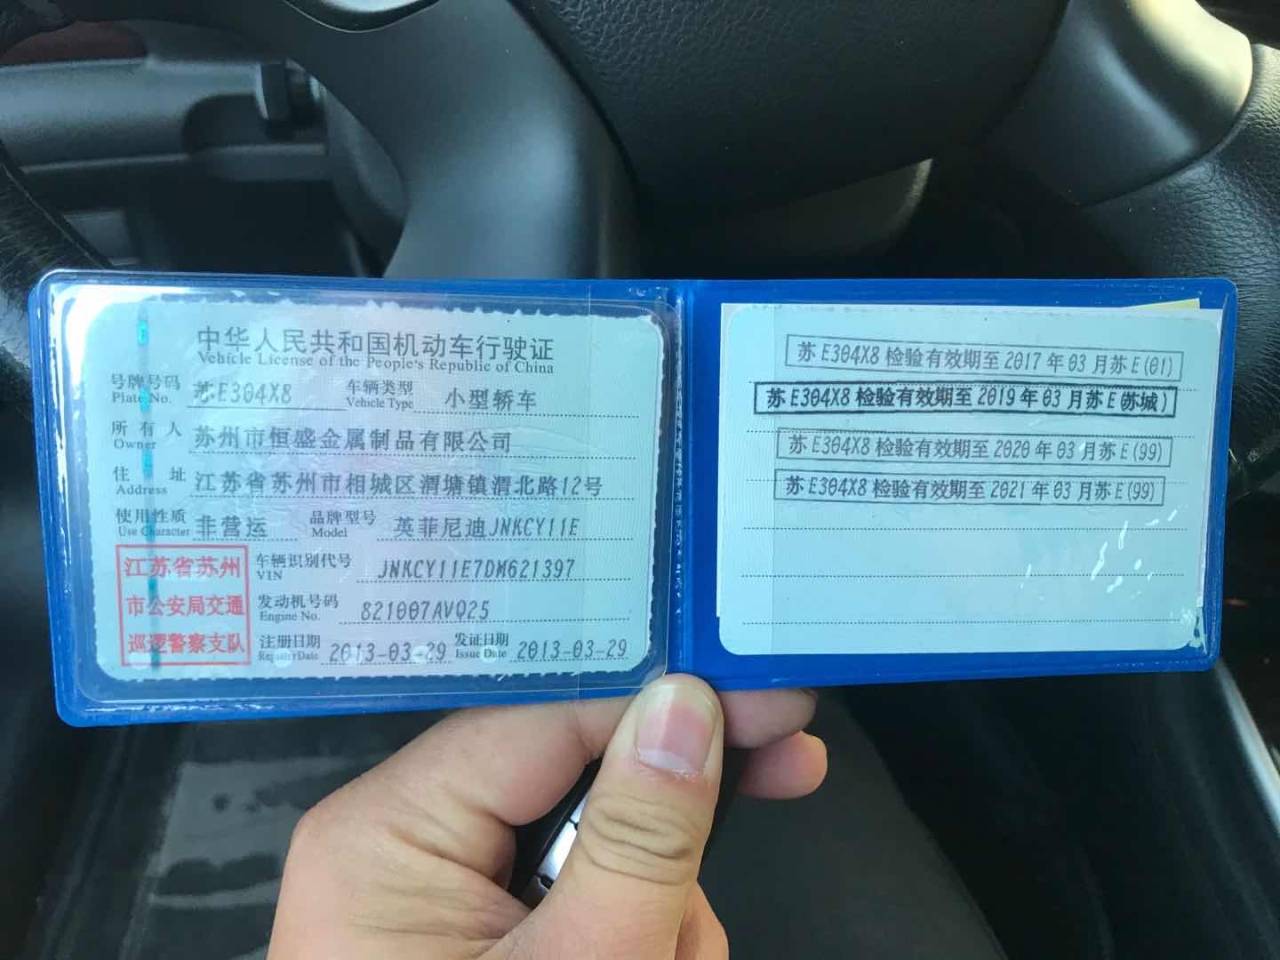 中华人民共和国机动车行驶证
Vehicle License of the People's Republic of China
号牌号码 苏E304X8 车辆类型 小型轿车
Plate No. Vehicle Type
所有人 苏州市恒盛金属制品有限公司
Owner
住址 江苏省苏州市相城区渭塘镇渭北路12号
Address
使用性质 非营运 品牌型号 英菲尼迪JNKCY11E
Use Character Model
江苏省苏州
市公安局交通
巡逻警察支队
车辆识别代号 JNKCY11E7DM621397
VIN
发动机号码 821007AVQ25
Engine No.
注册日期 2013-03-29 发证日期 2013-03-29
Register Date Issue Date
苏E304X8检验有效期至2017年03月苏E(01)
苏E304X8检验有效期至2019年03月苏E(苏城)
苏E304X8检验有效期至2020年03月苏E(99)
苏E304X8检验有效期至2021年03月苏E(99)